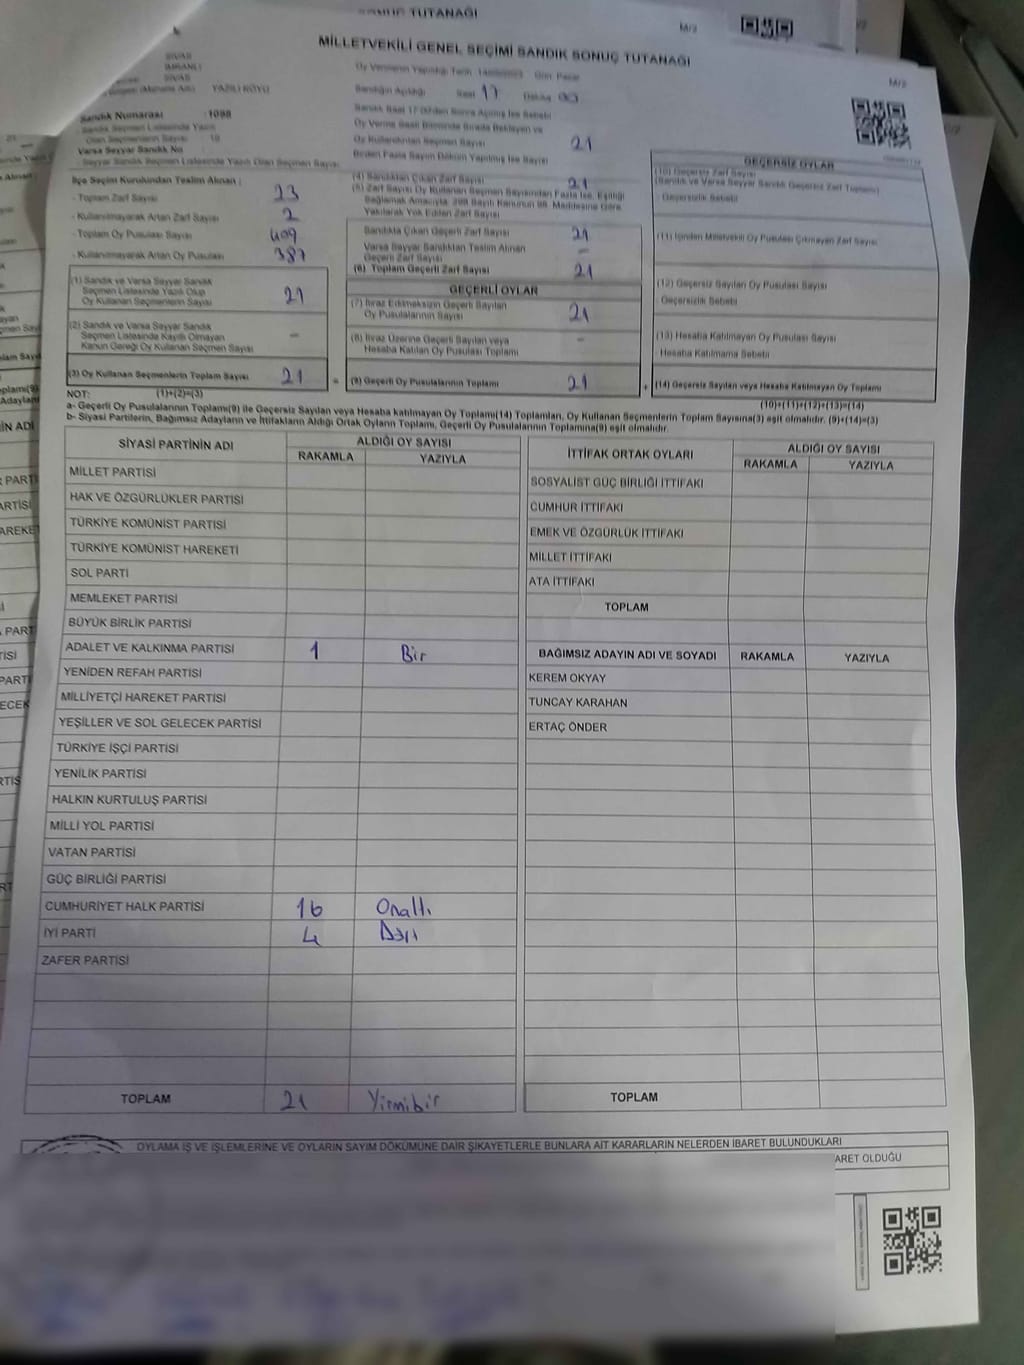 SONUÇ TUTANAĞI
M/2
MİLLETVEKİLİ GENEL SEÇİMİ SANDIK SONUÇ TUTANAĞI
M/2
SİVAS
İMRANLI
SİVAS
YAZILI KÖYÜ
Sandığın Açıldığı Saat 17 Dakika 00
Sandık Numarası : 1098
Olan Seçmenlerin Sayısı : 19
Varsa Seyyar Sandık No
- Seyyar Sandık Seçmen Listesinde Yazılı Olan Seçmen Sayısı
Oy Kullandırılan Seçmen Sayısı 21
Birden Fazla Sayım Döküm Yapılmış İse Sayısı
İlçe Seçim Kurulundan Teslim Alınan ;
- Toplam Zarf Sayısı 23
- Kullanılmayarak Artan Zarf Sayısı 2
- Toplam Oy Pusulası Sayısı 409
- Kullanılmayarak Artan Oy Pusulası 387
(1) Sandık ve Varsa Seyyar Sandık
Seçmen Listesinde Yazılı Olup
Oy Kullanan Seçmenlerin Sayısı 21
(2) Sandık ve Varsa Seyyar Sandık
Seçmen Listesinde Kayıtlı Olmayan
Kanun Gereği Oy Kullanan Seçmen Sayısı -
(3) Oy Kullanan Seçmenlerin Toplam Sayısı 21
(4) Sandıktan Çıkan Zarf Sayısı 21
(5) Zarf Sayısı Oy Kullanan Seçmen Sayısından Fazla İse, Eşitliği
Sağlamak Amacıyla, 298 Sayılı Kanunun 98. Maddesine Göre
Yakılarak Yok Edilen Zarf Sayısı
Sandıkta Çıkan Geçerli Zarf Sayısı 21
Varsa Seyyar Sandıktan Teslim Alınan
Geçerli Zarf Sayısı -
(6) Toplam Geçerli Zarf Sayısı 21
GEÇERLİ OYLAR
(7) İtiraz Edilmeksizin Geçerli Sayılan
Oy Pusulalarının Sayısı 21
(8) İtiraz Üzerine Geçerli Sayılan veya
Hesaba Katılan Oy Pusulası Toplamı -
= (9) Geçerli Oy Pusulalarının Toplamı 21
GEÇERSİZ OYLAR
(10) Geçersiz Zarf Sayısı
(Sandık ve Varsa Seyyar Sandık Geçersiz Zarf Toplamı)
Geçersizlik Sebebi
(11) İçinden Milletvekili Oy Pusulası Çıkmayan Zarf Sayısı
(12) Geçersiz Sayılan Oy Pusulası Sayısı
Geçersizlik Sebebi
(13) Hesaba Katılmayan Oy Pusulası Sayısı
Hesaba Katılmama Sebebi
+ (14) Geçersiz Sayılan veya Hesaba Katılmayan Oy Toplamı
NOT: (1)+(2)=(3) (10)+(11)+(12)+(13)=(14)
a- Geçerli Oy Pusulalarının Toplamı(9) ile Geçersiz Sayılan veya Hesaba katılmayan Oy Toplamı(14) Toplamları, Oy Kullanan Seçmenlerin Toplam Sayısına(3) eşit olmalıdır. (9)+(14)=(3)
b- Siyasi Partilerin, Bağımsız Adayların ve İttifakların Aldığı Ortak Oyların Toplamı, Geçerli Oy Pusulalarının Toplamına(9) eşit olmalıdır.
SİYASİ PARTİNİN ADI ALDIĞI OY SAYISI
RAKAMLA YAZIYLA
MİLLET PARTİSİ
HAK VE ÖZGÜRLÜKLER PARTİSİ
TÜRKİYE KOMÜNİST PARTİSİ
TÜRKİYE KOMÜNİST HAREKETİ
SOL PARTİ
MEMLEKET PARTİSİ
BÜYÜK BİRLİK PARTİSİ
ADALET VE KALKINMA PARTİSİ 1 Bir
YENİDEN REFAH PARTİSİ
MİLLİYETÇİ HAREKET PARTİSİ
YEŞİLLER VE SOL GELECEK PARTİSİ
TÜRKİYE İŞÇİ PARTİSİ
YENİLİK PARTİSİ
HALKIN KURTULUŞ PARTİSİ
MİLLİ YOL PARTİSİ
VATAN PARTİSİ
GÜÇ BİRLİĞİ PARTİSİ
CUMHURİYET HALK PARTİSİ 16 Onaltı
İYİ PARTİ 4 Dört
ZAFER PARTİSİ
TOPLAM 21 Yirmibir
İTTİFAK ORTAK OYLARI ALDIĞI OY SAYISI
RAKAMLA YAZIYLA
SOSYALİST GÜÇ BİRLİĞİ İTTİFAKI
CUMHUR İTTİFAKI
EMEK VE ÖZGÜRLÜK İTTİFAKI
MİLLET İTTİFAKI
ATA İTTİFAKI
TOPLAM
BAĞIMSIZ ADAYIN ADI VE SOYADI RAKAMLA YAZIYLA
KEREM OKYAY
TUNCAY KARAHAN
ERTAÇ ÖNDER
TOPLAM
OYLAMA İŞ VE İŞLEMLERİNE VE OYLARIN SAYIM DÖKÜMÜNE DAİR ŞİKAYETLERLE BUNLARA AİT KARARLARIN NELERDEN İBARET BULUNDUKLARI
ARET OLDUĞU